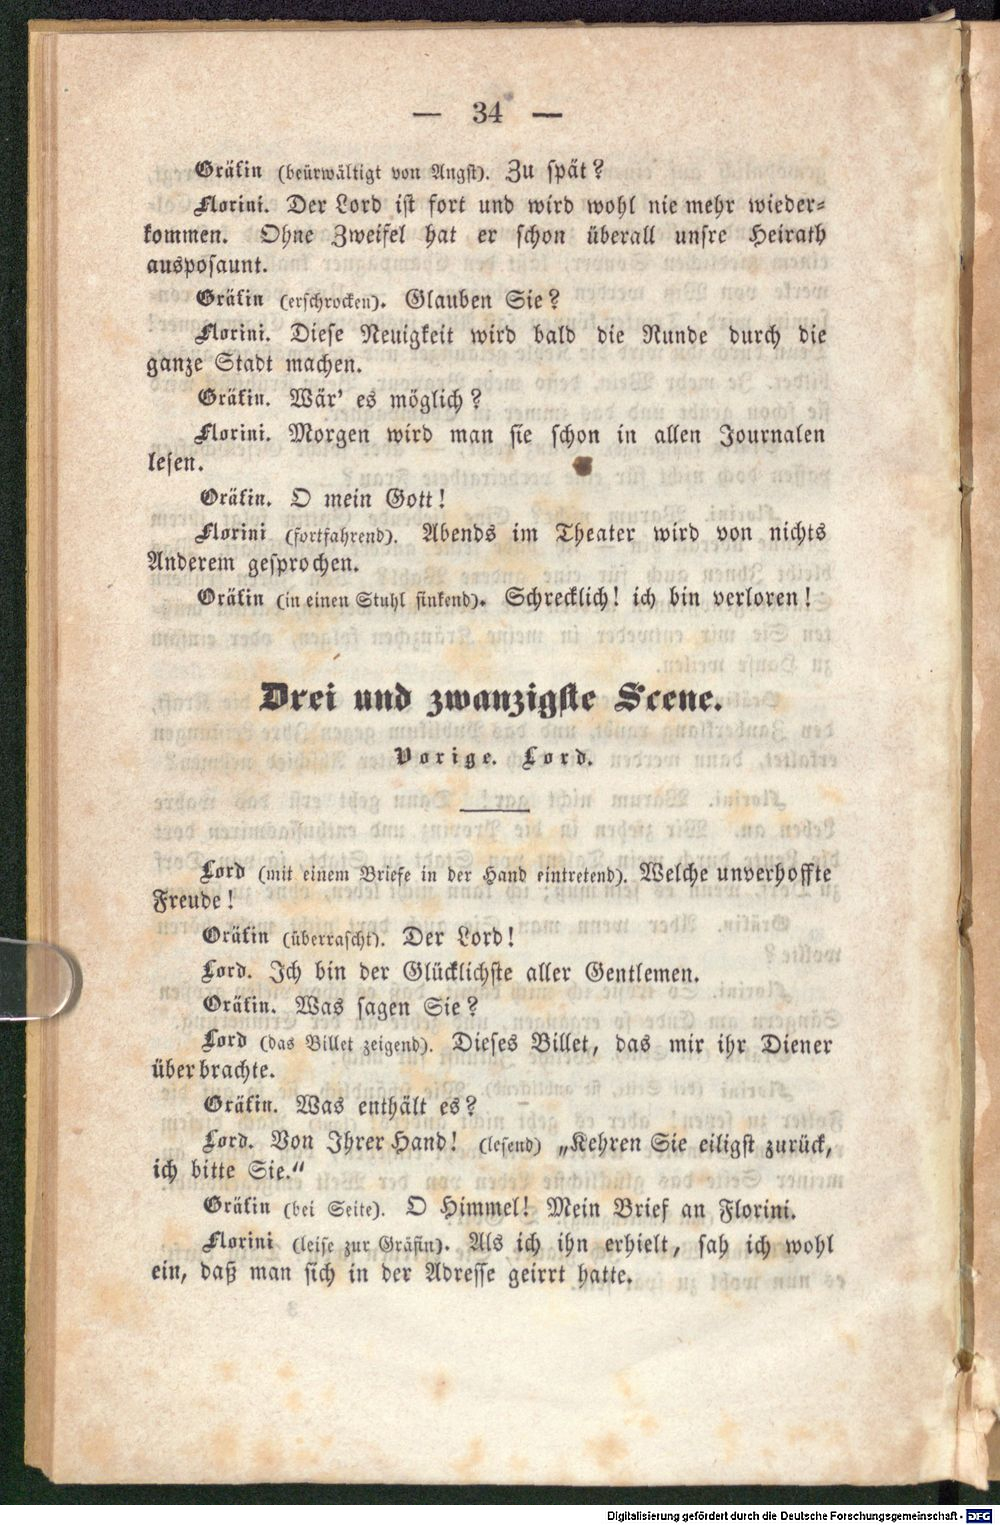 — 34 —
Gräfin (beürwältigt von Angst). Zu spät?
Florini. Der Lord ist fort und wird wohl nie mehr wieder-
kommen. Ohne Zweifel hat er schon überall unsre Heirath
ausposaunt.
Gräfin (erschrocken). Glauben Sie?
Florini. Diese Neuigkeit wird bald die Runde durch die
ganze Stadt machen.
Gräfin. Wär' es möglich?
Florini. Morgen wird man sie schon in allen Journalen
lesen.
Gräfin. O mein Gott!
Florini (fortfahrend). Abends im Theater wird von nichts
Anderem gesprochen.
Gräfin (in einen Stuhl sinkend). Schrecklich! ich bin verloren!
Drei und zwanzigste Scene.
Vorige. Lord.
Lord (mit einem Briefe in der Hand eintretend). Welche unverhoffte
Freude!
Gräfin (überrascht). Der Lord!
Lord. Ich bin der Glücklichste aller Gentlemen.
Gräfin. Was sagen Sie?
Lord (das Billet zeigend). Dieses Billet, das mir ihr Diener
überbrachte.
Gräfin. Was enthält es?
Lord. Von Ihrer Hand! (lesend) „Kehren Sie eiligst zurück,
ich bitte Sie.“
Gräfin (bei Seite). O Himmel! Mein Brief an Florini.
Florini (leise zur Gräfin). Als ich ihn erhielt, sah ich wohl
ein, daß man sich in der Adresse geirrt hatte.
Digitalisierung gefördert durch die Deutsche Forschungsgemeinschaft - DFG